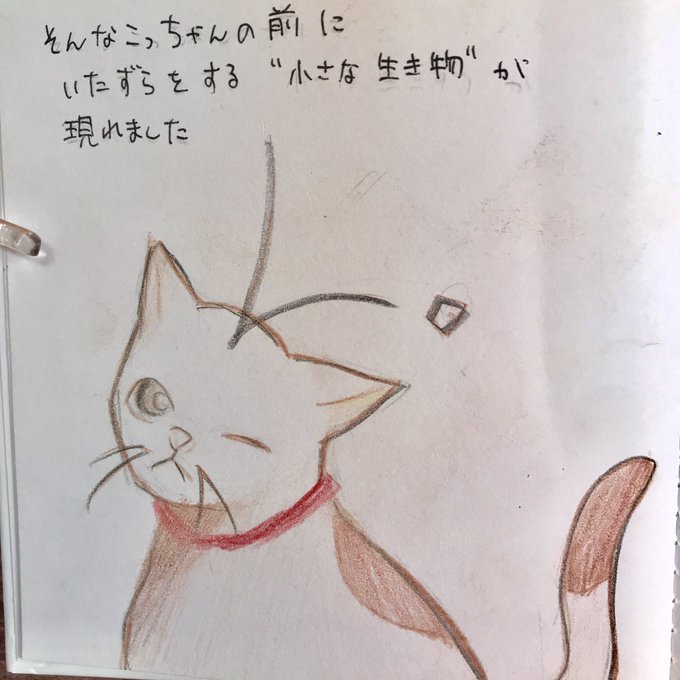 そんなこっちゃんの前に
いたずらをする"小さな生き物"が
現れました